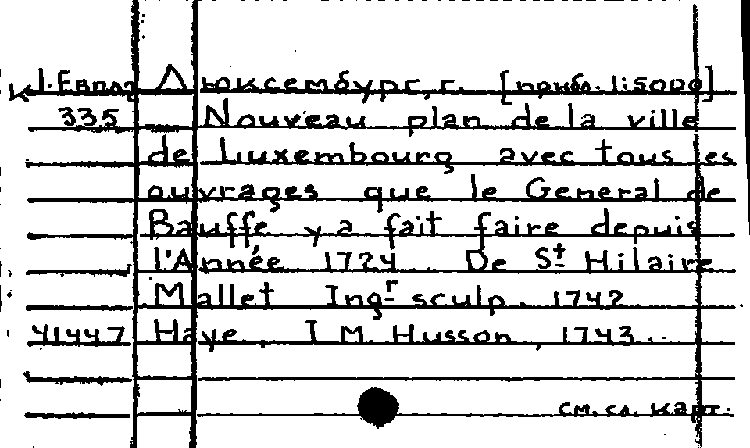 К 1-Европ Люксембург, г. [прибл. 1:5000]
335 Nouveau plan de la ville
de Luxembourg avec tous les
ouvrages que le General de
Bauffe y a fait faire depuis
l'Année 1724. De St Hilaire
Mallet Ingr sculp. 1742
41447 Haye, I M. Husson, 1743.
см. сл. карт.